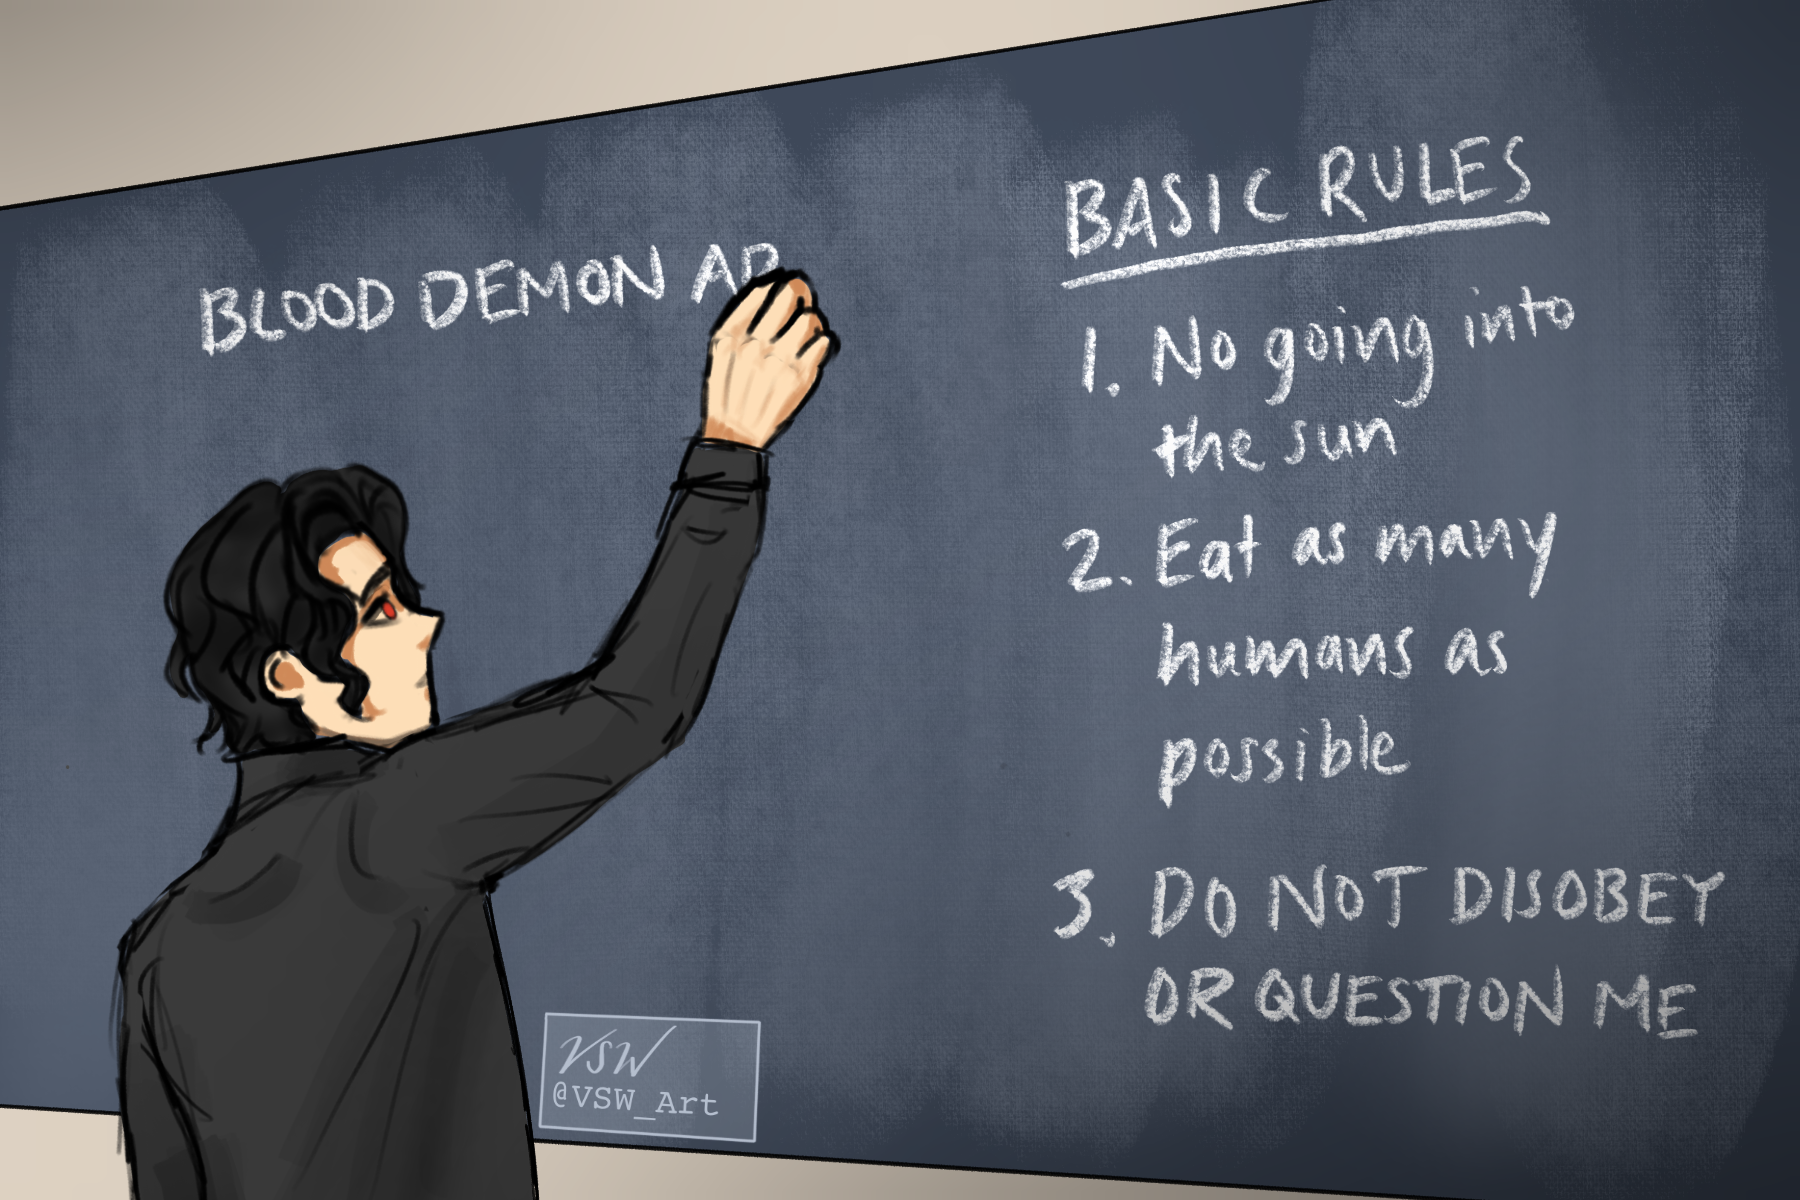 BLOOD DEMON AR
BASIC RULES
1. No going into
the sun
2. Eat as many
humans as
possible
3. DO NOT DISOBEY
OR QUESTION ME
VSW
@VSW_Art